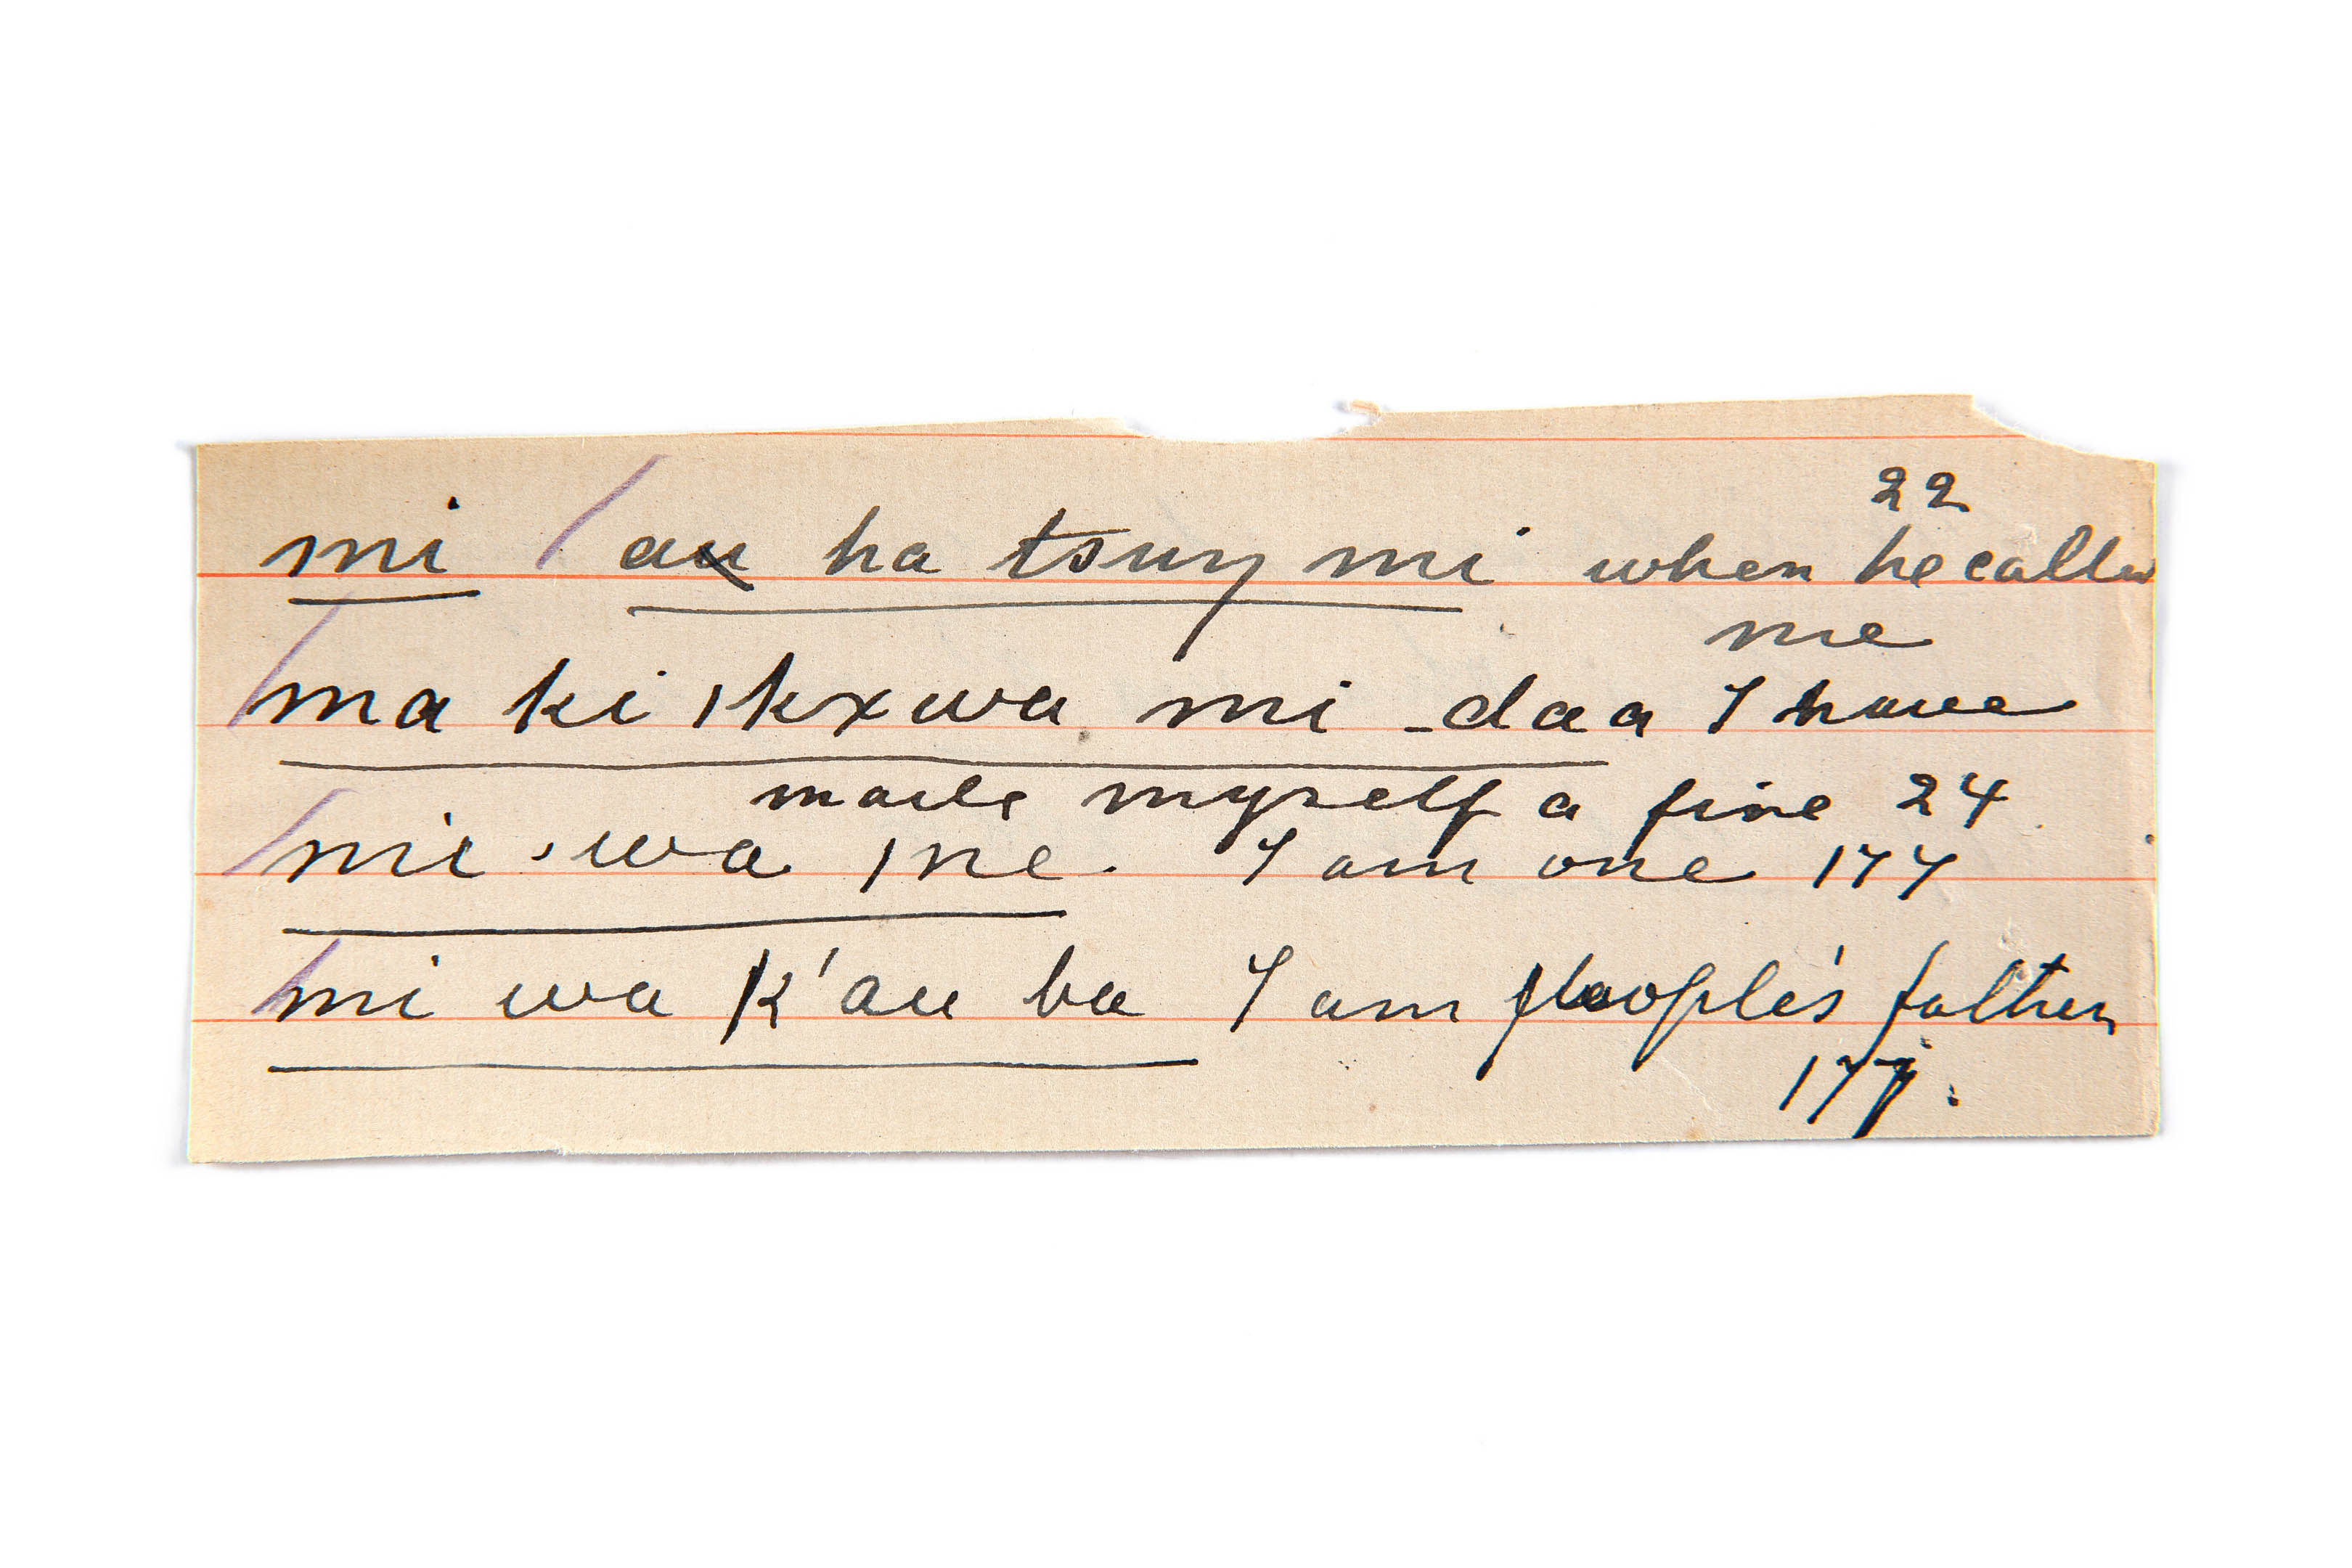 22
mi / au ha tsuŋ mi when he calls
me
/ ma ki ıkxwa mi - daa I have
made myself a fine 24
/ mi · wa ıne. I am one 177
/ mi wa k'au ba I am people's father
177.